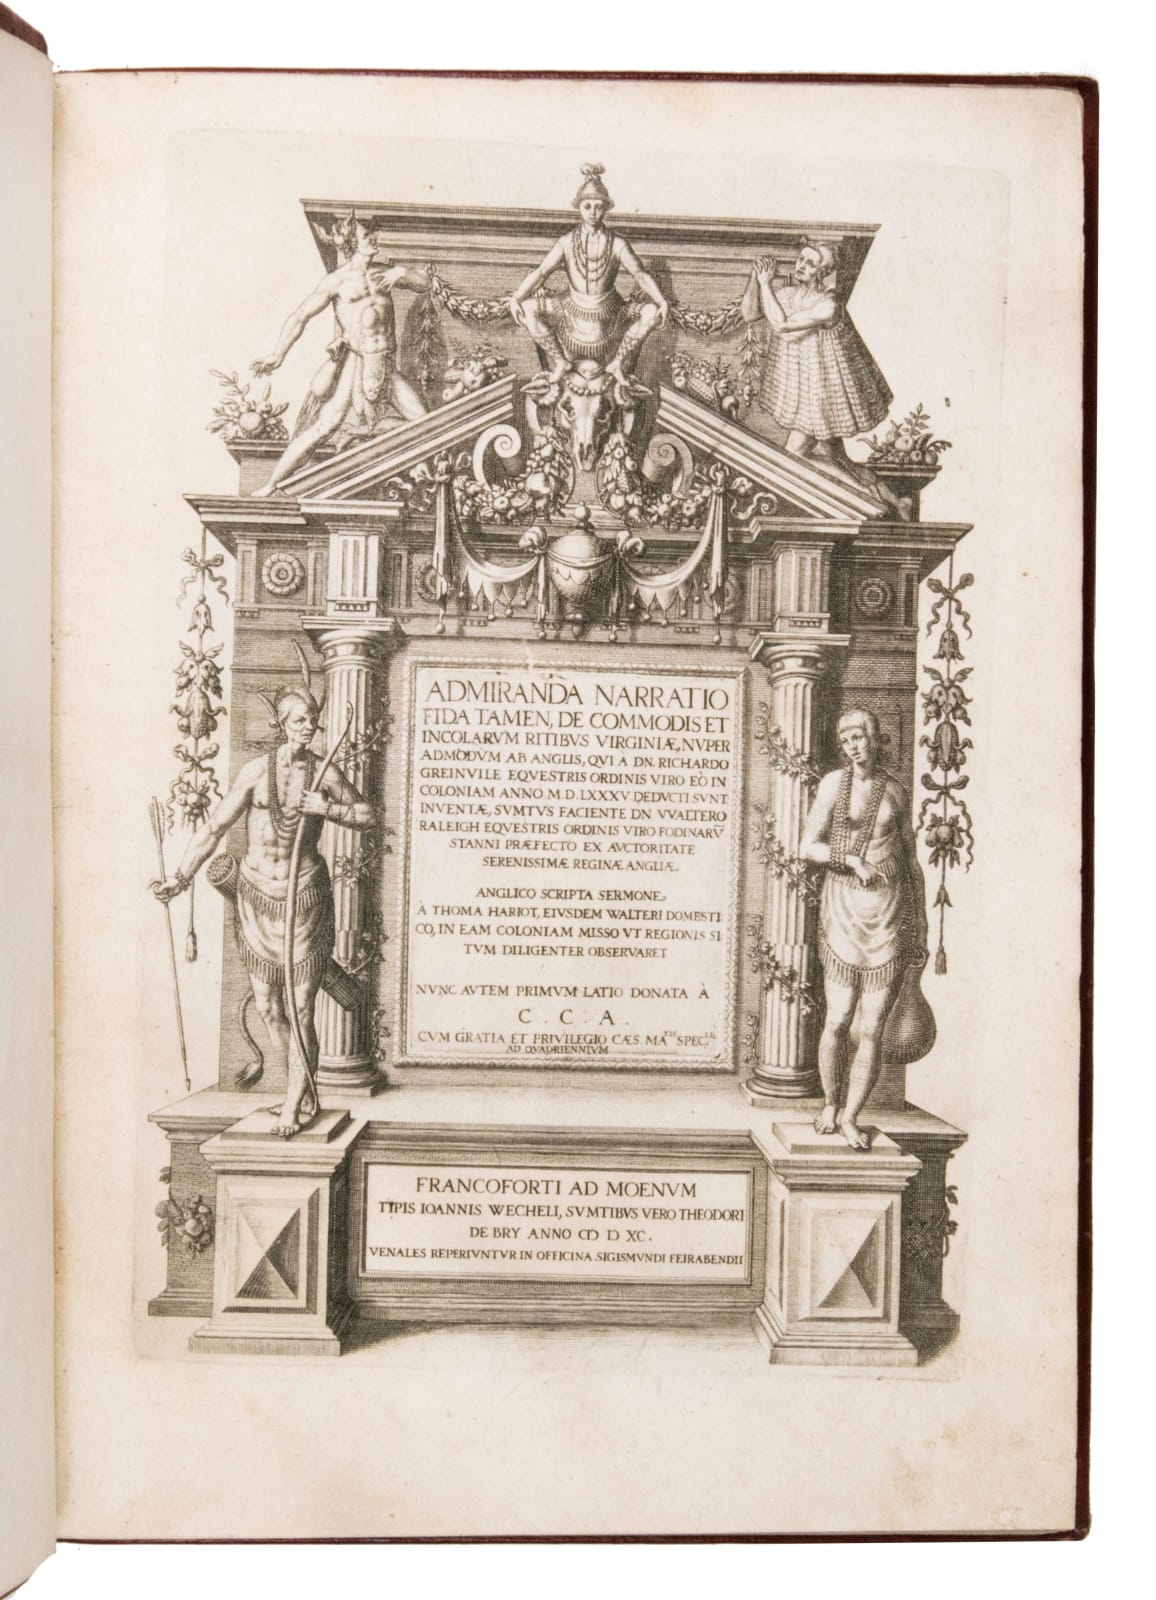 ADMIRANDA NARRATIO
FIDA TAMEN, DE COMMODIS ET
INCOLARVM RITIBVS VIRGINIÆ, NVPER
ADMODVM AB ANGLIS, QVI A DN. RICHARDO
GREINVILE EQVESTRIS ORDINIS VIRO EÒ IN
COLONIAM ANNO M.D.LXXXV. DEDVCTI SVNT
INVENTÆ, SVMTVS FACIENTE DN. VVALTERO
RALEIGH EQVESTRIS ORDINIS VIRO FODINARV̄
STANNI PRÆFECTO EX AVCTORITATE
SERENISSIMÆ REGINÆ ANGLIÆ.
ANGLICO SCRIPTA SERMONE,
À THOMA HARIOT, EIVSDEM WALTERI DOMESTI
CO, IN EAM COLONIAM MISSO VT REGIONIS SI
TVM DILIGENTER OBSERVARET
NVNC AVTEM PRIMVM LATIO DONATA À
C . C . A .
CVM GRATIA ET PRIVILEGIO CÆS. MA.TIS SPEC.LI
AD QVADRIENNIVM
FRANCOFORTI AD MOENVM
TYPIS IOANNIS WECHELI, SVMTIBVS VERO THEODORI
DE BRY ANNO CIↃ IↃ XC.
VENALES REPERIVNTVR IN OFFICINA SIGISMVNDI FEIRABENDII